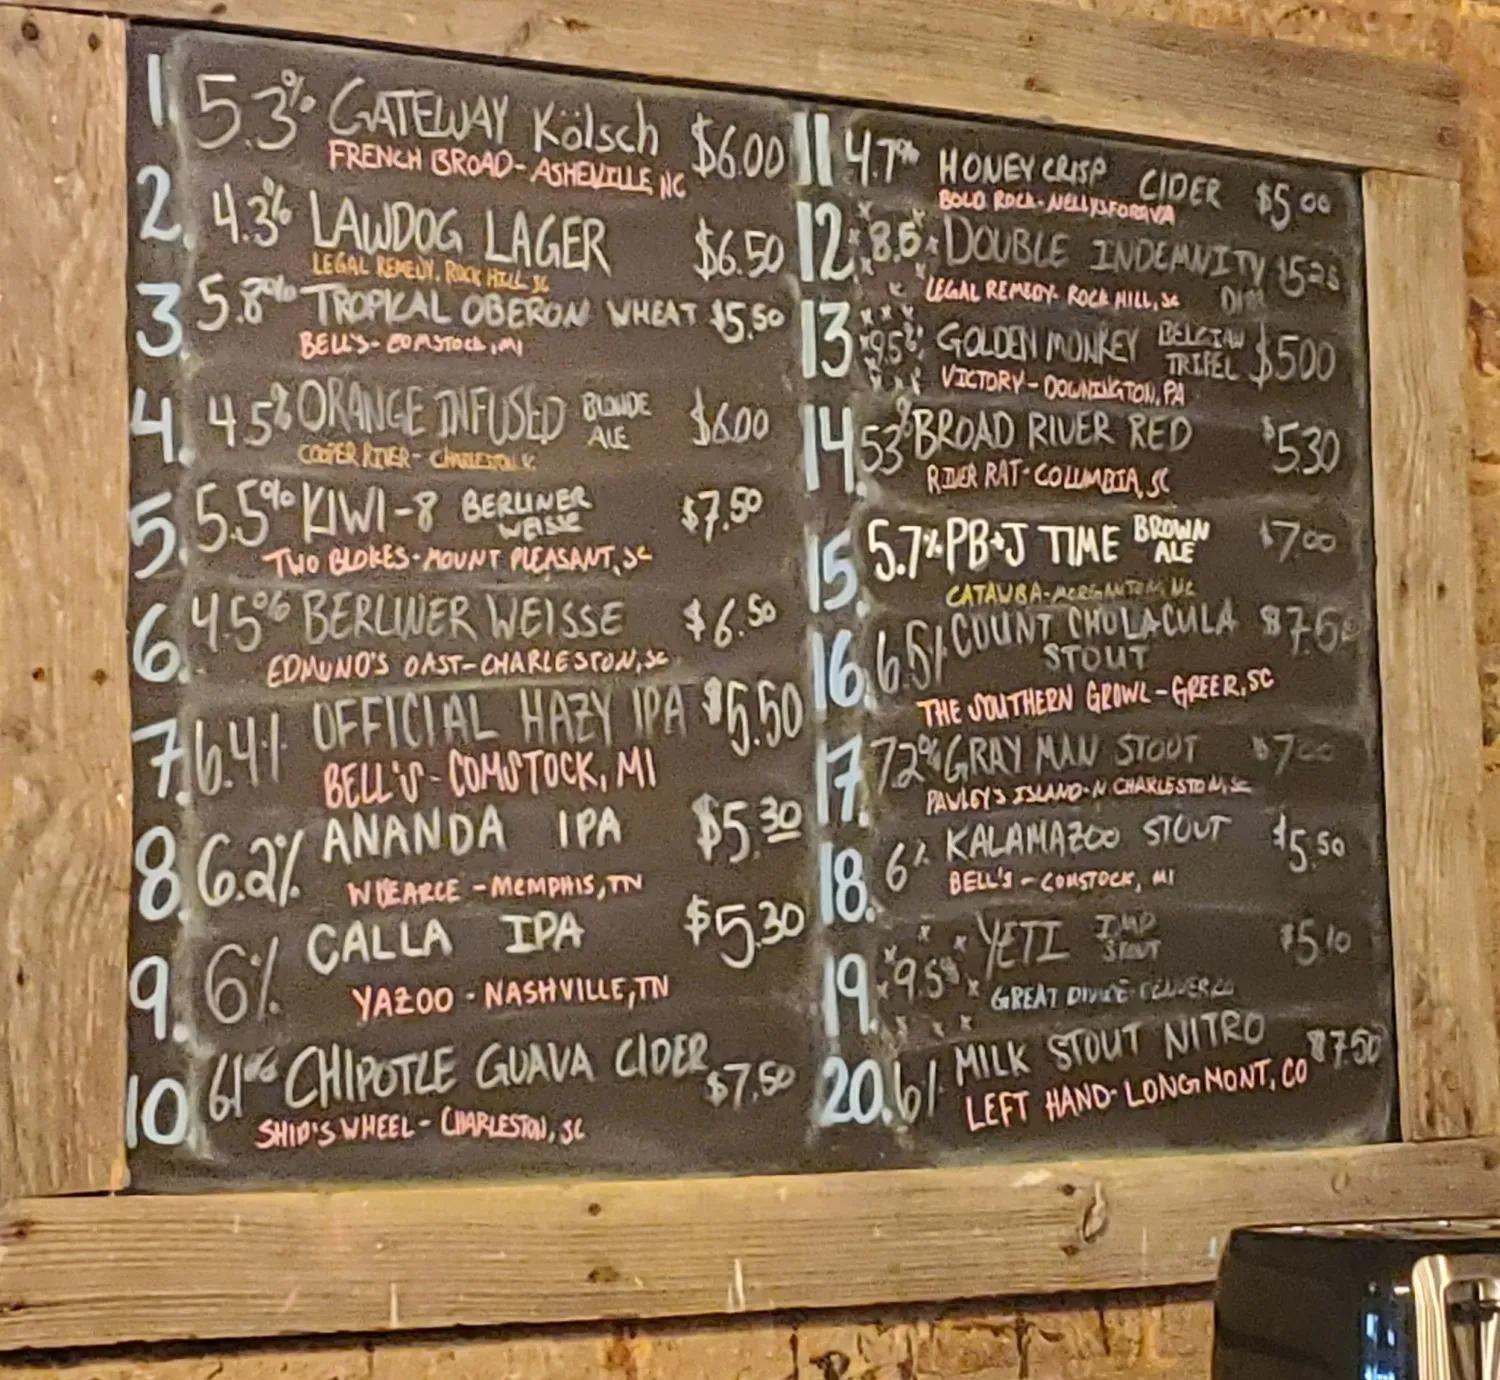 1. 5.3% GATEWAY Kölsch $6.00
FRENCH BROAD - ASHEVILLE, NC
2. 4.3% LAWDOG LAGER $6.50
LEGAL REMEDY, ROCK HILL, SC
3. 5.8% TROPICAL OBERON WHEAT $5.50
BELL'S - COMSTOCK, MI
4. 4.5% ORANGE INFUSED BLONDE ALE $6.00
COOPER RIVER - CHARLESTON
5. 5.5% KIWI-8 BERLINER WEISSE $7.50
TWO BLOKES - MOUNT PLEASANT, SC
6. 4.5% BERLINER WEISSE $6.50
EDMUND'S OAST - CHARLESTON, SC
7. 6.4% OFFICIAL HAZY IPA $5.50
BELL'S - COMSTOCK, MI
8. 6.2% ANANDA IPA $5.30
WISEACRE - MEMPHIS, TN
9. 6% CALLA IPA $5.30
YAZOO - NASHVILLE, TN
10. 6.1% CHIPOTLE GUAVA CIDER $7.50
SHIP'S WHEEL - CHARLESTON, SC
11 4.7% HONEY CRISP CIDER $5.00
BOLD ROCK - NELLYSFORD VA
12. 8.5 DOUBLE INDEMNITY $5.25
LEGAL REMEDY - ROCK HILL, SC
13 9.5% GOLDEN MONKEY BELGIAN TRIPEL $5.00
VICTORY - DOWNINGTON, PA
14. 5.3% BROAD RIVER RED $5.30
RIVER RAT - COLUMBIA, SC
15. 5.7% PB+J TIME BROWN ALE $7.00
CATAWBA - MORGANTON, NC
16. 6.5% COUNT CHOLACULA STOUT $7.50
THE SOUTHERN GROWL - GREER, SC
17. 7.2% GRAY MAN STOUT $7.00
PAWLEY'S ISLAND - N. CHARLESTON, SC
18. 6% KALAMAZOO STOUT $5.50
BELL'S - COMSTOCK, MI
19. 9.5% YETI IMP STOUT $5.10
GREAT DIVIDE - DENVER, CO
20. 6% MILK STOUT NITRO $7.50
LEFT HAND - LONGMONT, CO